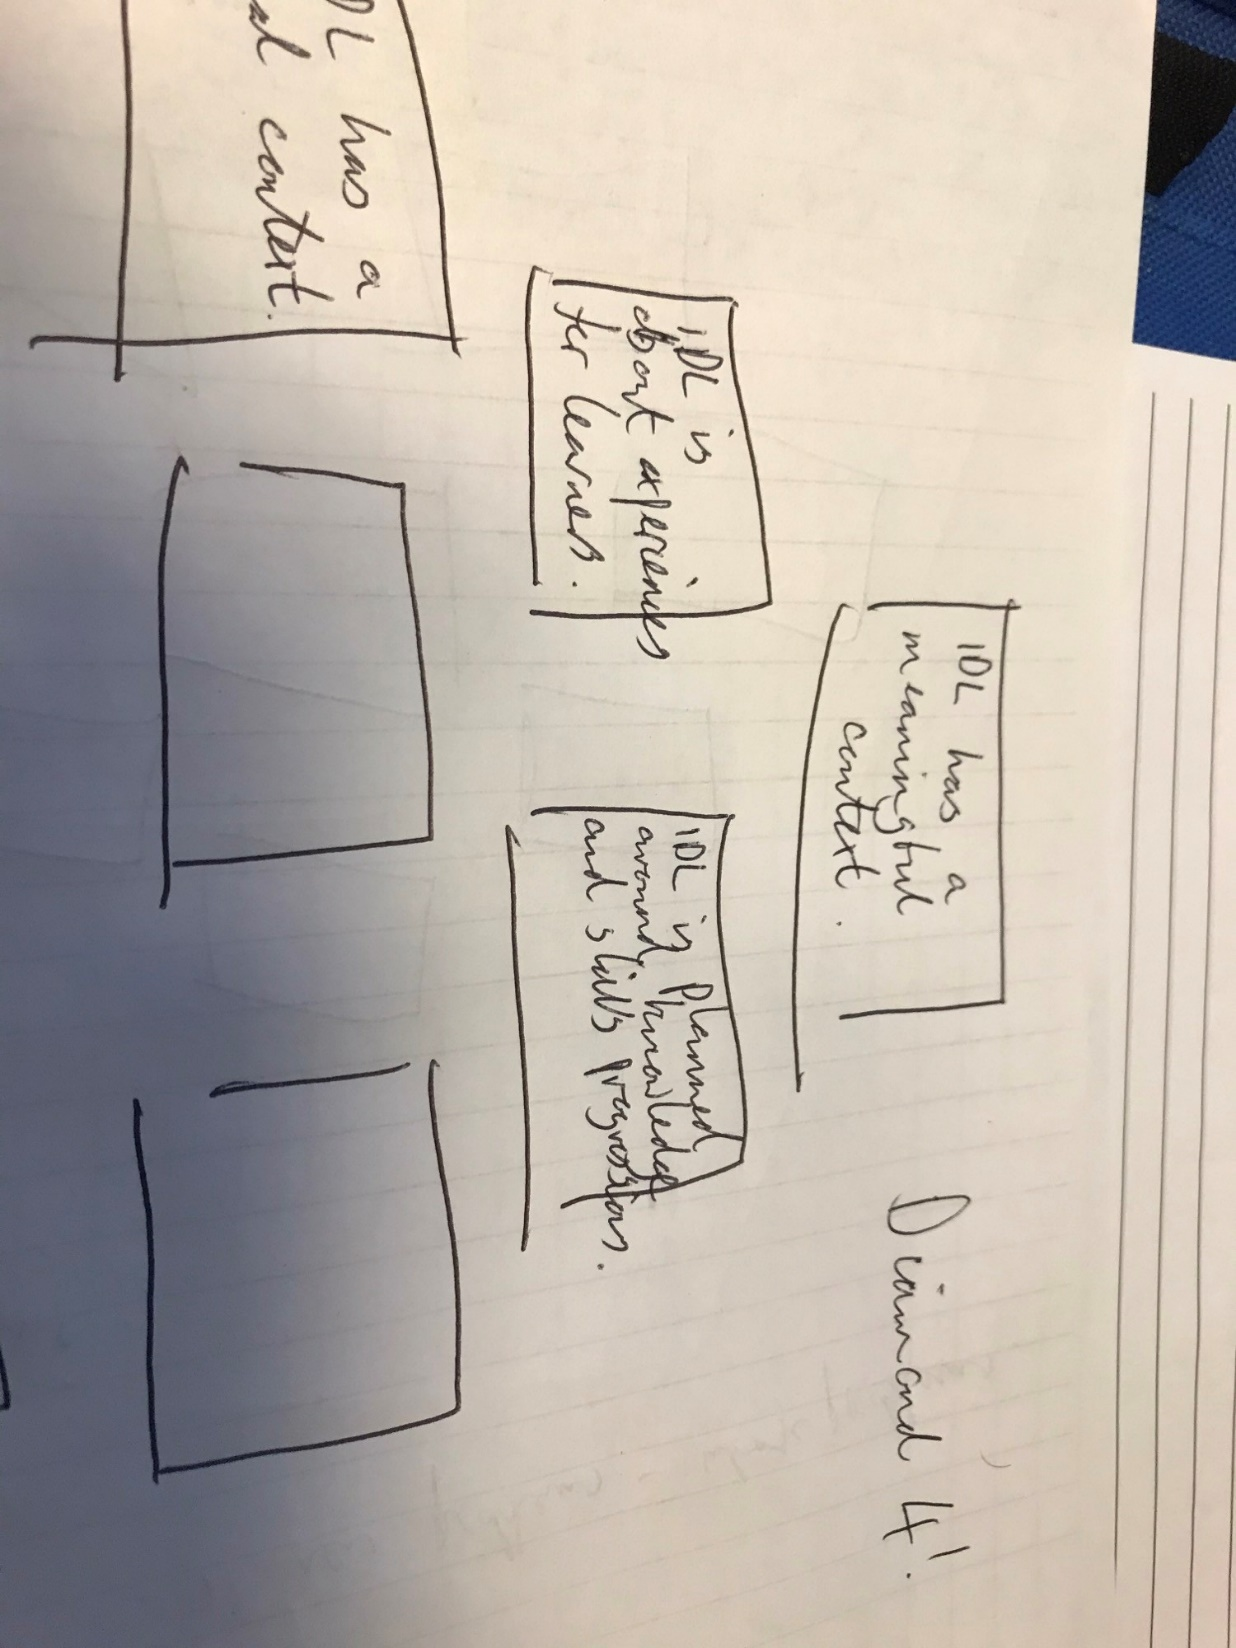 Diamond 4!
IDL has a
meaningful
context.
IDL is
about experiences
for learners.
IDL is planned
around knowledge
and skills progression.
has a
context.